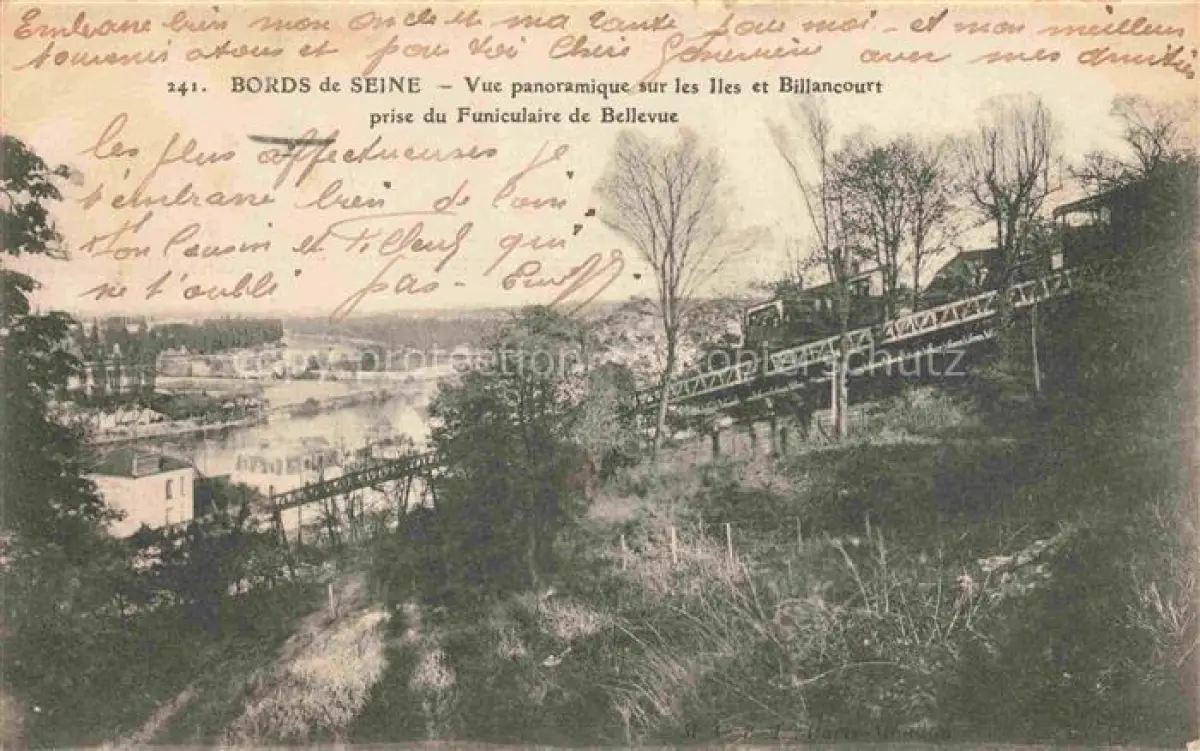 Embrasse bien mon oncle et ma tante pour moi - et mon meilleur
souvenir à tous et pour toi Chère Germaine avec mes amitiés
241. BORDS de SEINE - Vue panoramique sur les Iles et Billancourt
prise du Funiculaire de Bellevue
les plus affectueuses je
t'embrasse bien de loin
ton Cousin et qui
ne t'oublie pas -
copyright by kohlerschutz